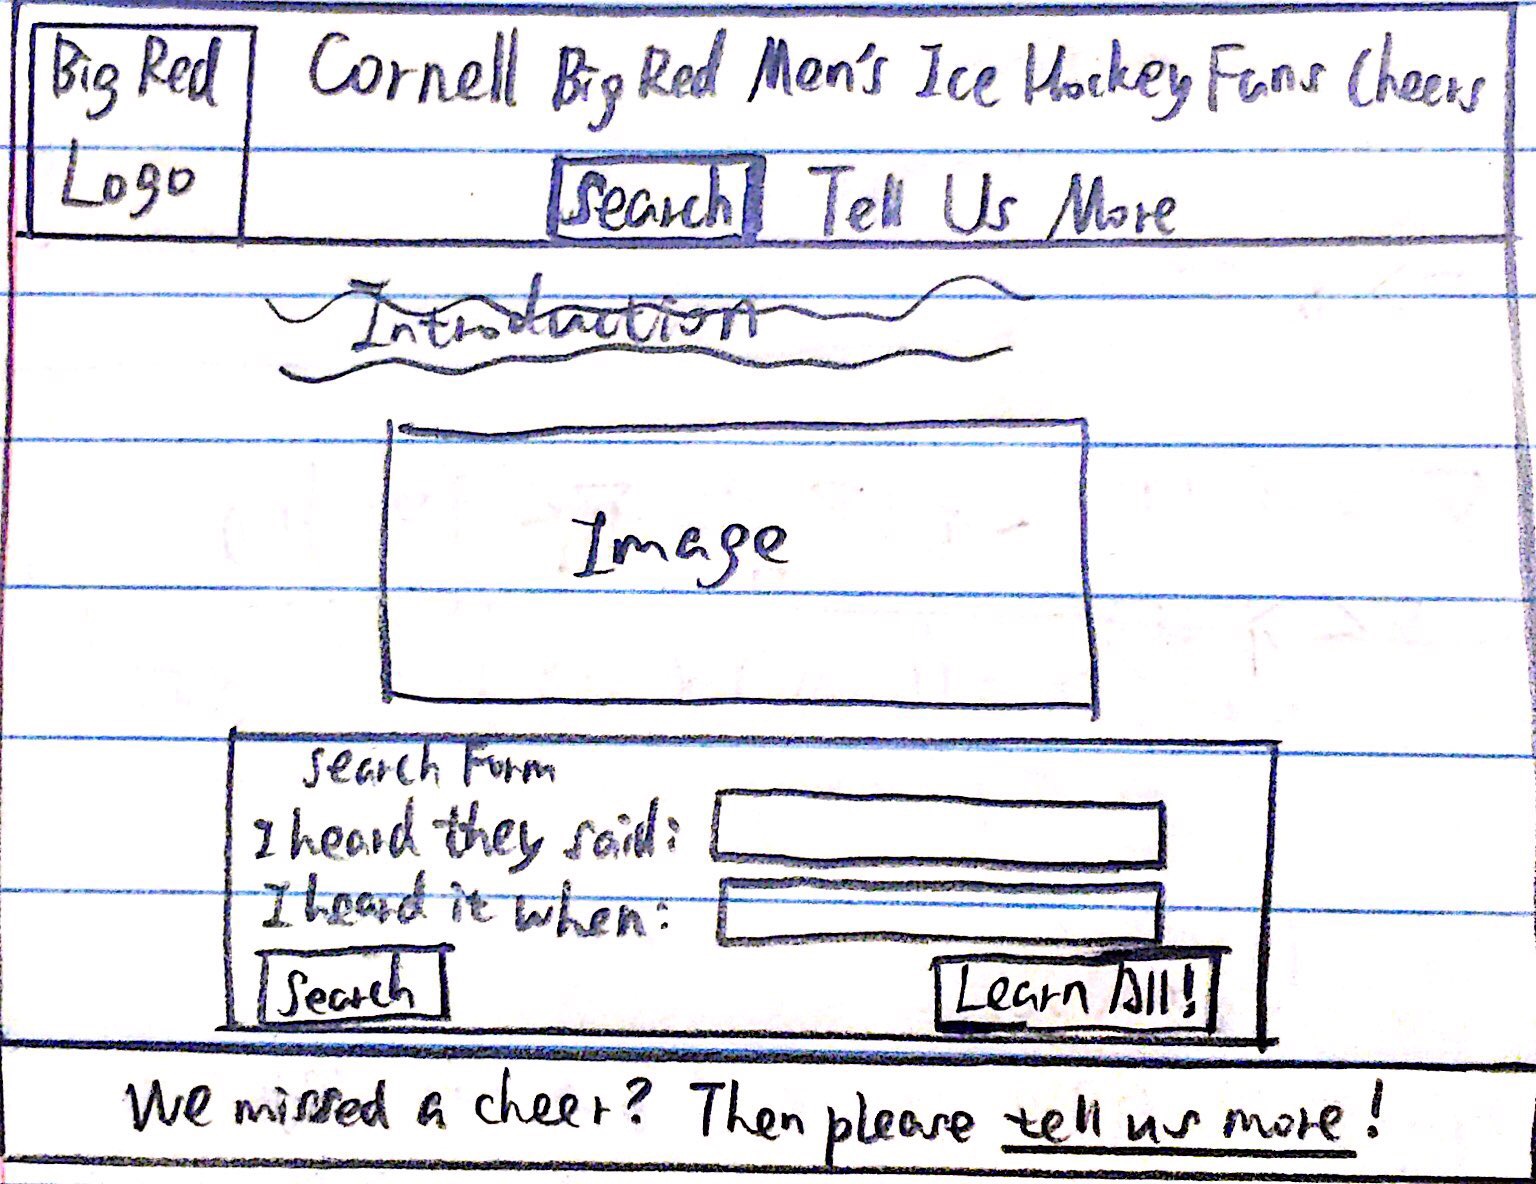 Big Red
Logo
Cornell Big Red Men's Ice Hockey Fans Cheers
Search Tell Us More
Introduction
Image
Search Form
I heard they said:
I heard it when:
Search
Learn All!
We missed a cheer? Then please tell us more!